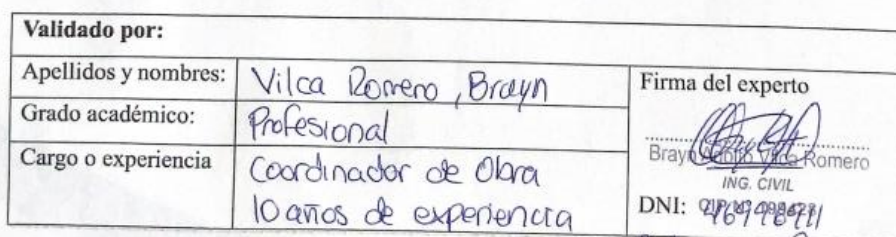 Validado por:
Apellidos y nombres: Vilca Romero, Brayn
Firma del experto
Grado académico: Profesional
Brayn Vilca Romero
ING. CIVIL
Cargo o experiencia Coordinador de Obra
10 años de experiencia
DNI: